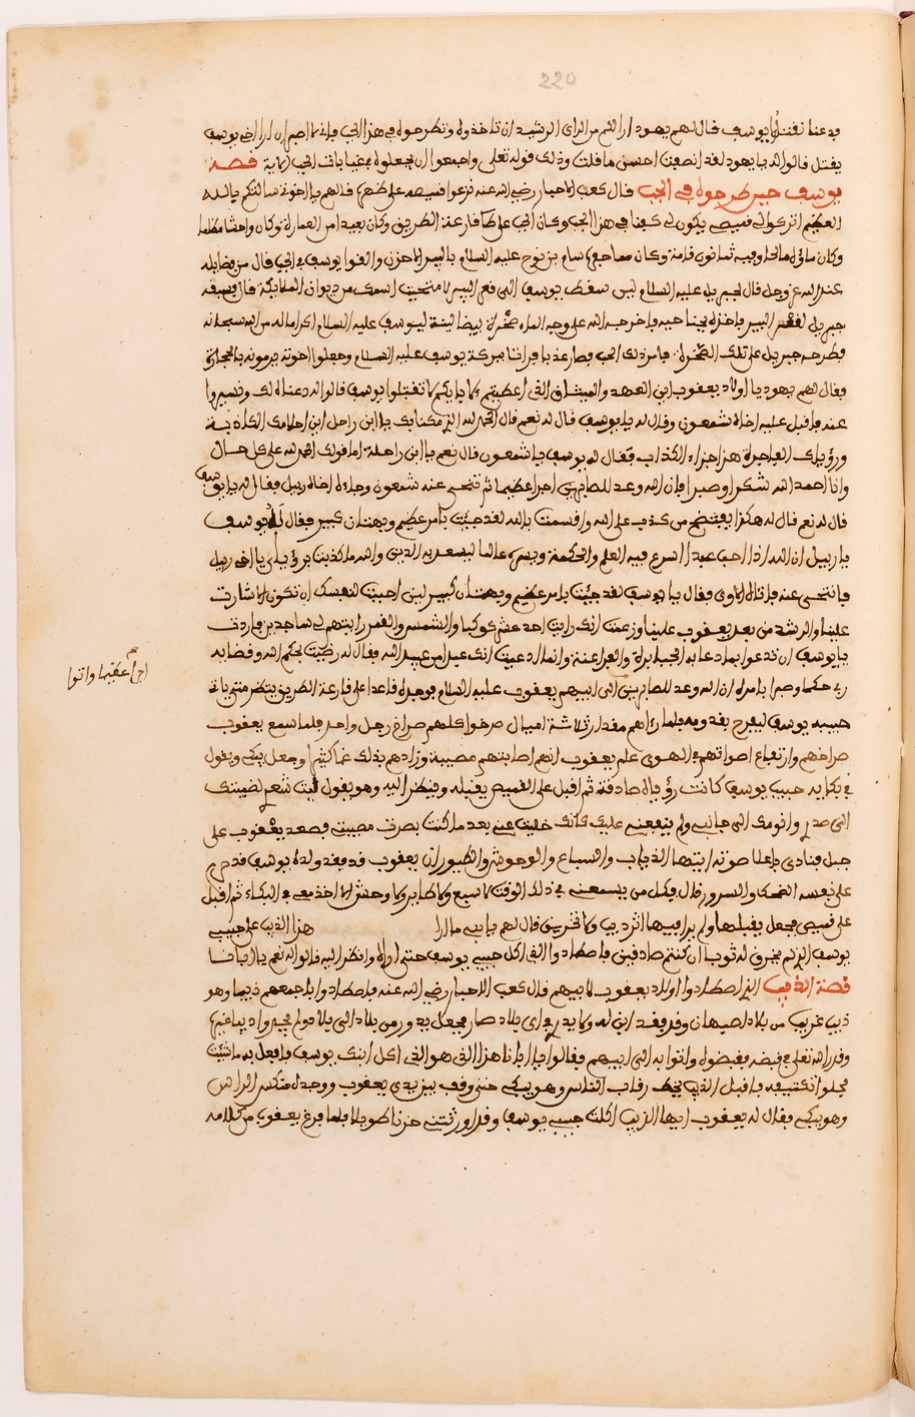 220
فدعنا نقتل يوسف قال لهم يهودا ان الامر من الراى الرشيد ان تاخذوه وتطرحوه في هذا الجب فانا ما اصبر ان ارا اخي يوسف
يقتل قالوا له يا يهودا لقد انصفت احسن ما قلت وذلك قوله تعلى واجمعوا ان يجعلوه في غيابات الجب الاية قصة
يوسف حين طرحوه في الجب قال كعب الاحبار رضي الله عنه نزعوا قميصه على ظهره قال لهم يا اخوتي سالتكم بالله
العظيم اتركوا لي قميصي يكون لي كفنا في هذا الجب وكان الجب على قارعة الطريق وكان بعيدا من العمارة وكان واحشا مظلما
وكان ماؤه مالحا وفيه ثمانون قامة وكان صاحبها سام بن نوح عليه السلام باليسر الاحزن والقوا يوسف في الجب قال من فضايله
عند الله عز وجل قال لجبريل عليه السلام لين سقط يوسف الى قعر البير لا محيت اسمك من ديوان الملايكة قال فسبقه
جبريل لقعر البير فاخذه بجناحيه فاخرجه الله على وجه الماء صخرة بيضا لينة ليوسف عليه السلام اكراما له من الله سبحانه
فطرحه جبريل على تلك الصخرة فامر ذلك الجب فصار عذبا فراتا ببركة يوسف عليه السلام وجعلوا اخوته يرمونه بالحجارة
فقال لهم يهودا يا اولاد يعقوب اين العهد والميثاق التي اعطيتم لابايكم لا تقتلوا يوسف قالوا له دعناه لك وتسيروا
عنه فاقبل عليه اخاه شمعون وقال له يا يوسف قال له نعم قال الحمد لله الذي مكنا بك يا ابن راحل اين احلامك الكاذبة
ورؤياك الفاجرة هذا جزاء الكذاب فقال له يوسف يا شمعون قال نعم يا ابن راحلة اما قولك الحمد لله على كل حال
وانا احمد الله شكرا وصبرا فان الله وعد للصابرين اجرا عظيما ثم تنحى عنه شمعون وجاءه اخاه ربيل فقال له يا يوسف
قال له نعم قال له هكذا يفتضح من كذب على الله واقسمت بالله لقد جيت بامر عظيم وبهتان كبير فقال له يوسف
يا ربيل ان الله اذا احب عبدا اسرع فيه العلم والحكمة والله ما كذبت برؤياي يا اخي ربيل
فانتحى عنه فاتاه لاوي فقال يا يوسف لقد جيت بامر عظيم وبهتان كبير لين احببت لنفسك ان تكون الاشارت
علينا والرشد من بعد يعقوب علينا وزعمت انك رايت احد عشر كوكبا والشمس والقمر رايتهم لي ساجدين فاردت
يا يوسف ان تدعوا بما دعا به الجبابرة والفراعنة وانما ادعيت انك عبدا من عبيد الله فقال له رضيت بحكم الله وقضايه
الى ابيهم يعقوب عليه السلام فوجدوه قاعدا على قارعة الطريق ينتظر متى ياته
حبيبه يوسف ليفرح بقدومه فلما راهم مقدار ثلاثة اميال صرخوا كلهم صراخ رجل واحد فلما سمع يعقوب
صراخهم وارتفاع اصواتهم في الهوى علم يعقوب انهم اصابتهم مصيبة وزادهم بذلك غما كثيرا وجعل يبكي ويقول
في بكايه حبيب يوسف كانت رؤياه صادقة ثم اقبل على القميص يقبله وينظر اليه وهو يقول ليت شعري لضمتك
الى صدري وانومك الى جانبي ولم ينفعني عليك بعد ما كنت فصعد يعقوب على
جبل فنادى باعلا صوته ايتها الذياب والسباع والوحوش والطيور ان يعقوب قد فقد ولده يوسف قد حرم
على نفسه الضحك والسرور قال فكل من يسمعه في ذلك الوقت لا سبع ولا طاير ولا وحش الا اخذ معه في البكاء ثم اقبل
على قميصي فجعل يقبلها ولم ير فيها اثر ذيب ولا تخريق قال لهم يا بني ما ارا هذا الذيب على حبيبي
يوسف الذي لم يخرق له ثوبا ان كنتم صادقين فاصطادوا الذي اكل حبيبي يوسف حتى اراه وانظر اليه قالوا له نعم يا ابانا
قصة الذيب الذي اصطادوا اولاد يعقوب لابيهم قال كعب الاحبار رضي الله عنه فاصطادوا باجمعهم ذيبا وهو
ذيب غريب من بلاد اصبهان وقد فقد ابن له ولا يدري اي بلاد صار فجعل يدور من بلاد الى بلاد ولم يجد
وقدر الله تعلى في قبضه فقبضوه واتوا به الى ابيهم فقالوا يا ابانا هذا الذي هو الذي اكل ابنك يوسف فافعل به ما شيت
فحلوا تكتيفه فاقبل الذيب يخطى رقاب الناس وهو يبكي حتى وقف بين يدي يعقوب ووجده منكس الراس
وهو يبكي فقال له يعقوب ايها الذيب اكلت حبيبي يوسف وقد اورثتني حزنا طويلا فلما فرغ يعقوب من كلامه